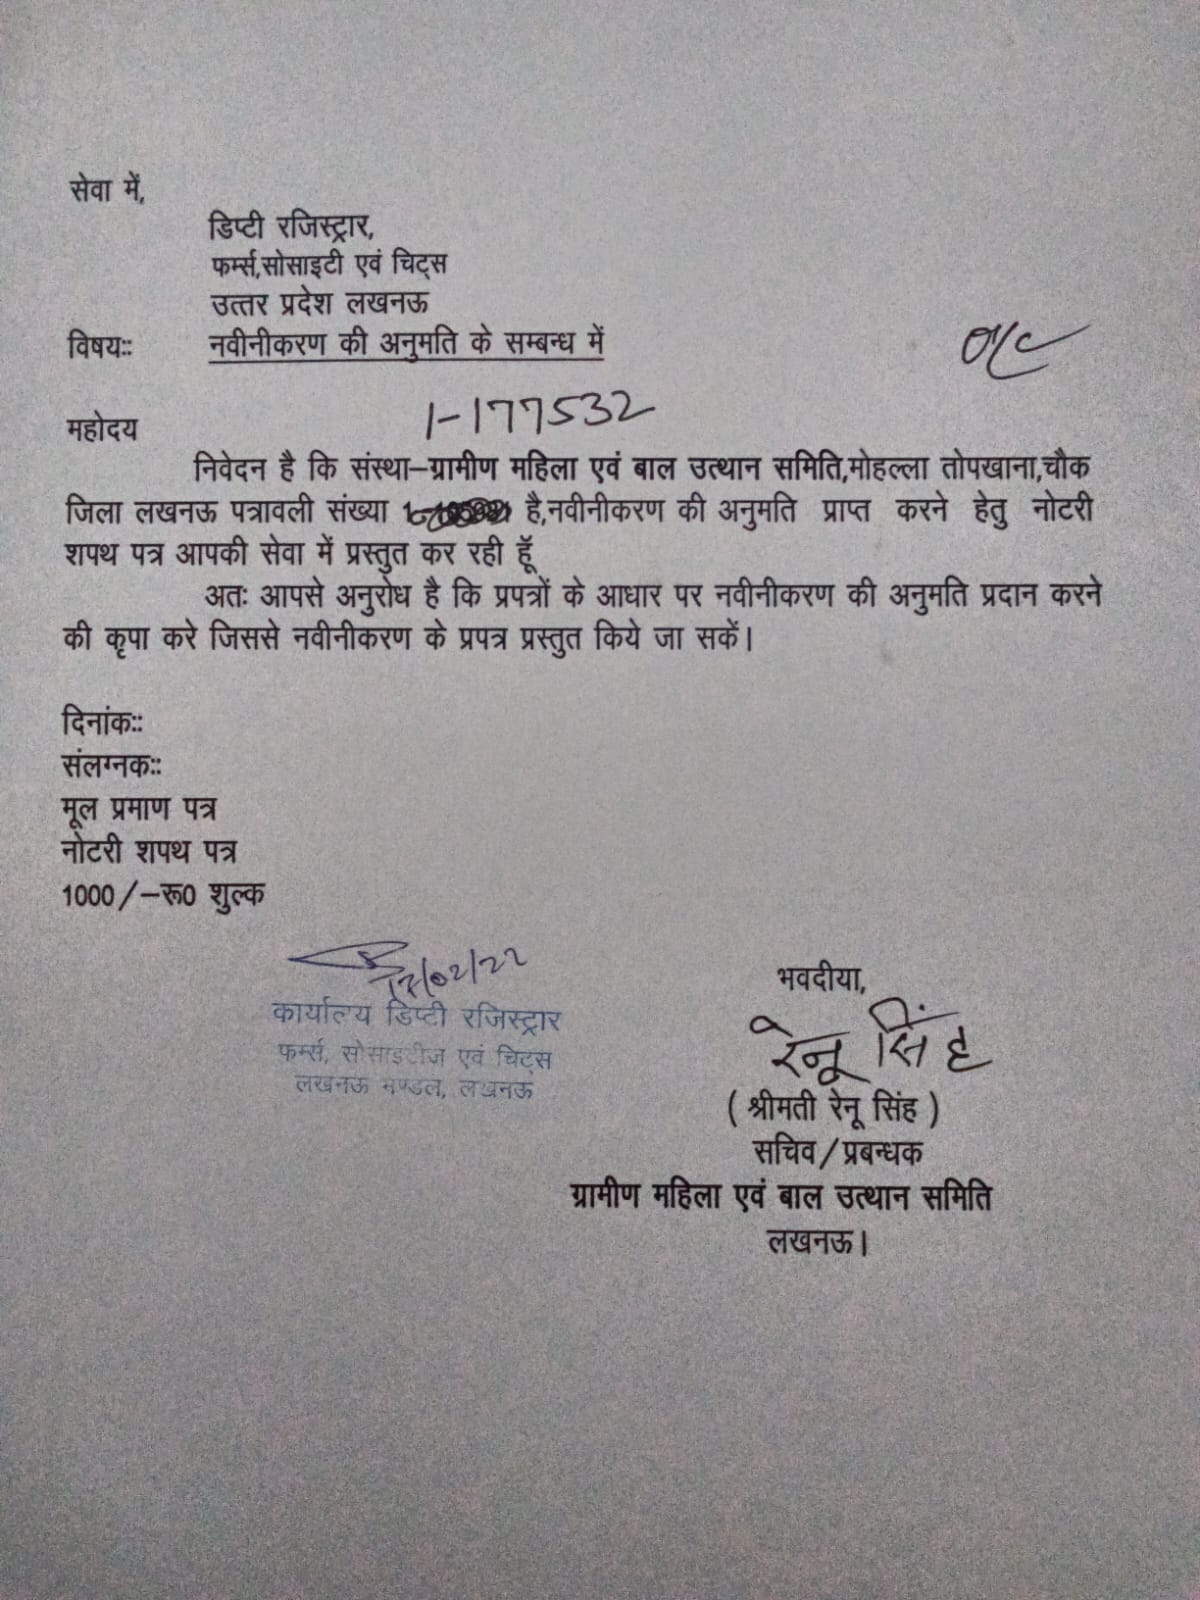 सेवा में,
डिप्टी रजिस्ट्रार,
फर्म्स,सोसाइटी एवं चिट्स
उत्तर प्रदेश लखनऊ
विषयः: नवीनीकरण की अनुमति के सम्बन्ध में
1-177532
महोदय
निवेदन है कि संस्था–ग्रामीण महिला एवं बाल उत्थान समिति,मोहल्ला तोपखाना,चौक
जिला लखनऊ पत्रावली संख्या है,नवीनीकरण की अनुमति प्राप्त करने हेतु नोटरी
शपथ पत्र आपकी सेवा में प्रस्तुत कर रही हूॅ
अतः आपसे अनुरोध है कि प्रपत्रों के आधार पर नवीनीकरण की अनुमति प्रदान करने
की कृपा करे जिससे नवीनीकरण के प्रपत्र प्रस्तुत किये जा सकें।
दिनांकः:
संलग्नकः:
मूल प्रमाण पत्र
नोटरी शपथ पत्र
1000/–रू0 शुल्क
17/02/22
कार्यालय डिप्टी रजिस्ट्रार
फर्म्स, सोसाइटीज एवं चिट्स
लखनऊ मण्डल, लखनऊ
भवदीया,
रेनू सिंह
( श्रीमती रेनू सिंह )
सचिव/प्रबन्धक
ग्रामीण महिला एवं बाल उत्थान समिति
लखनऊ।